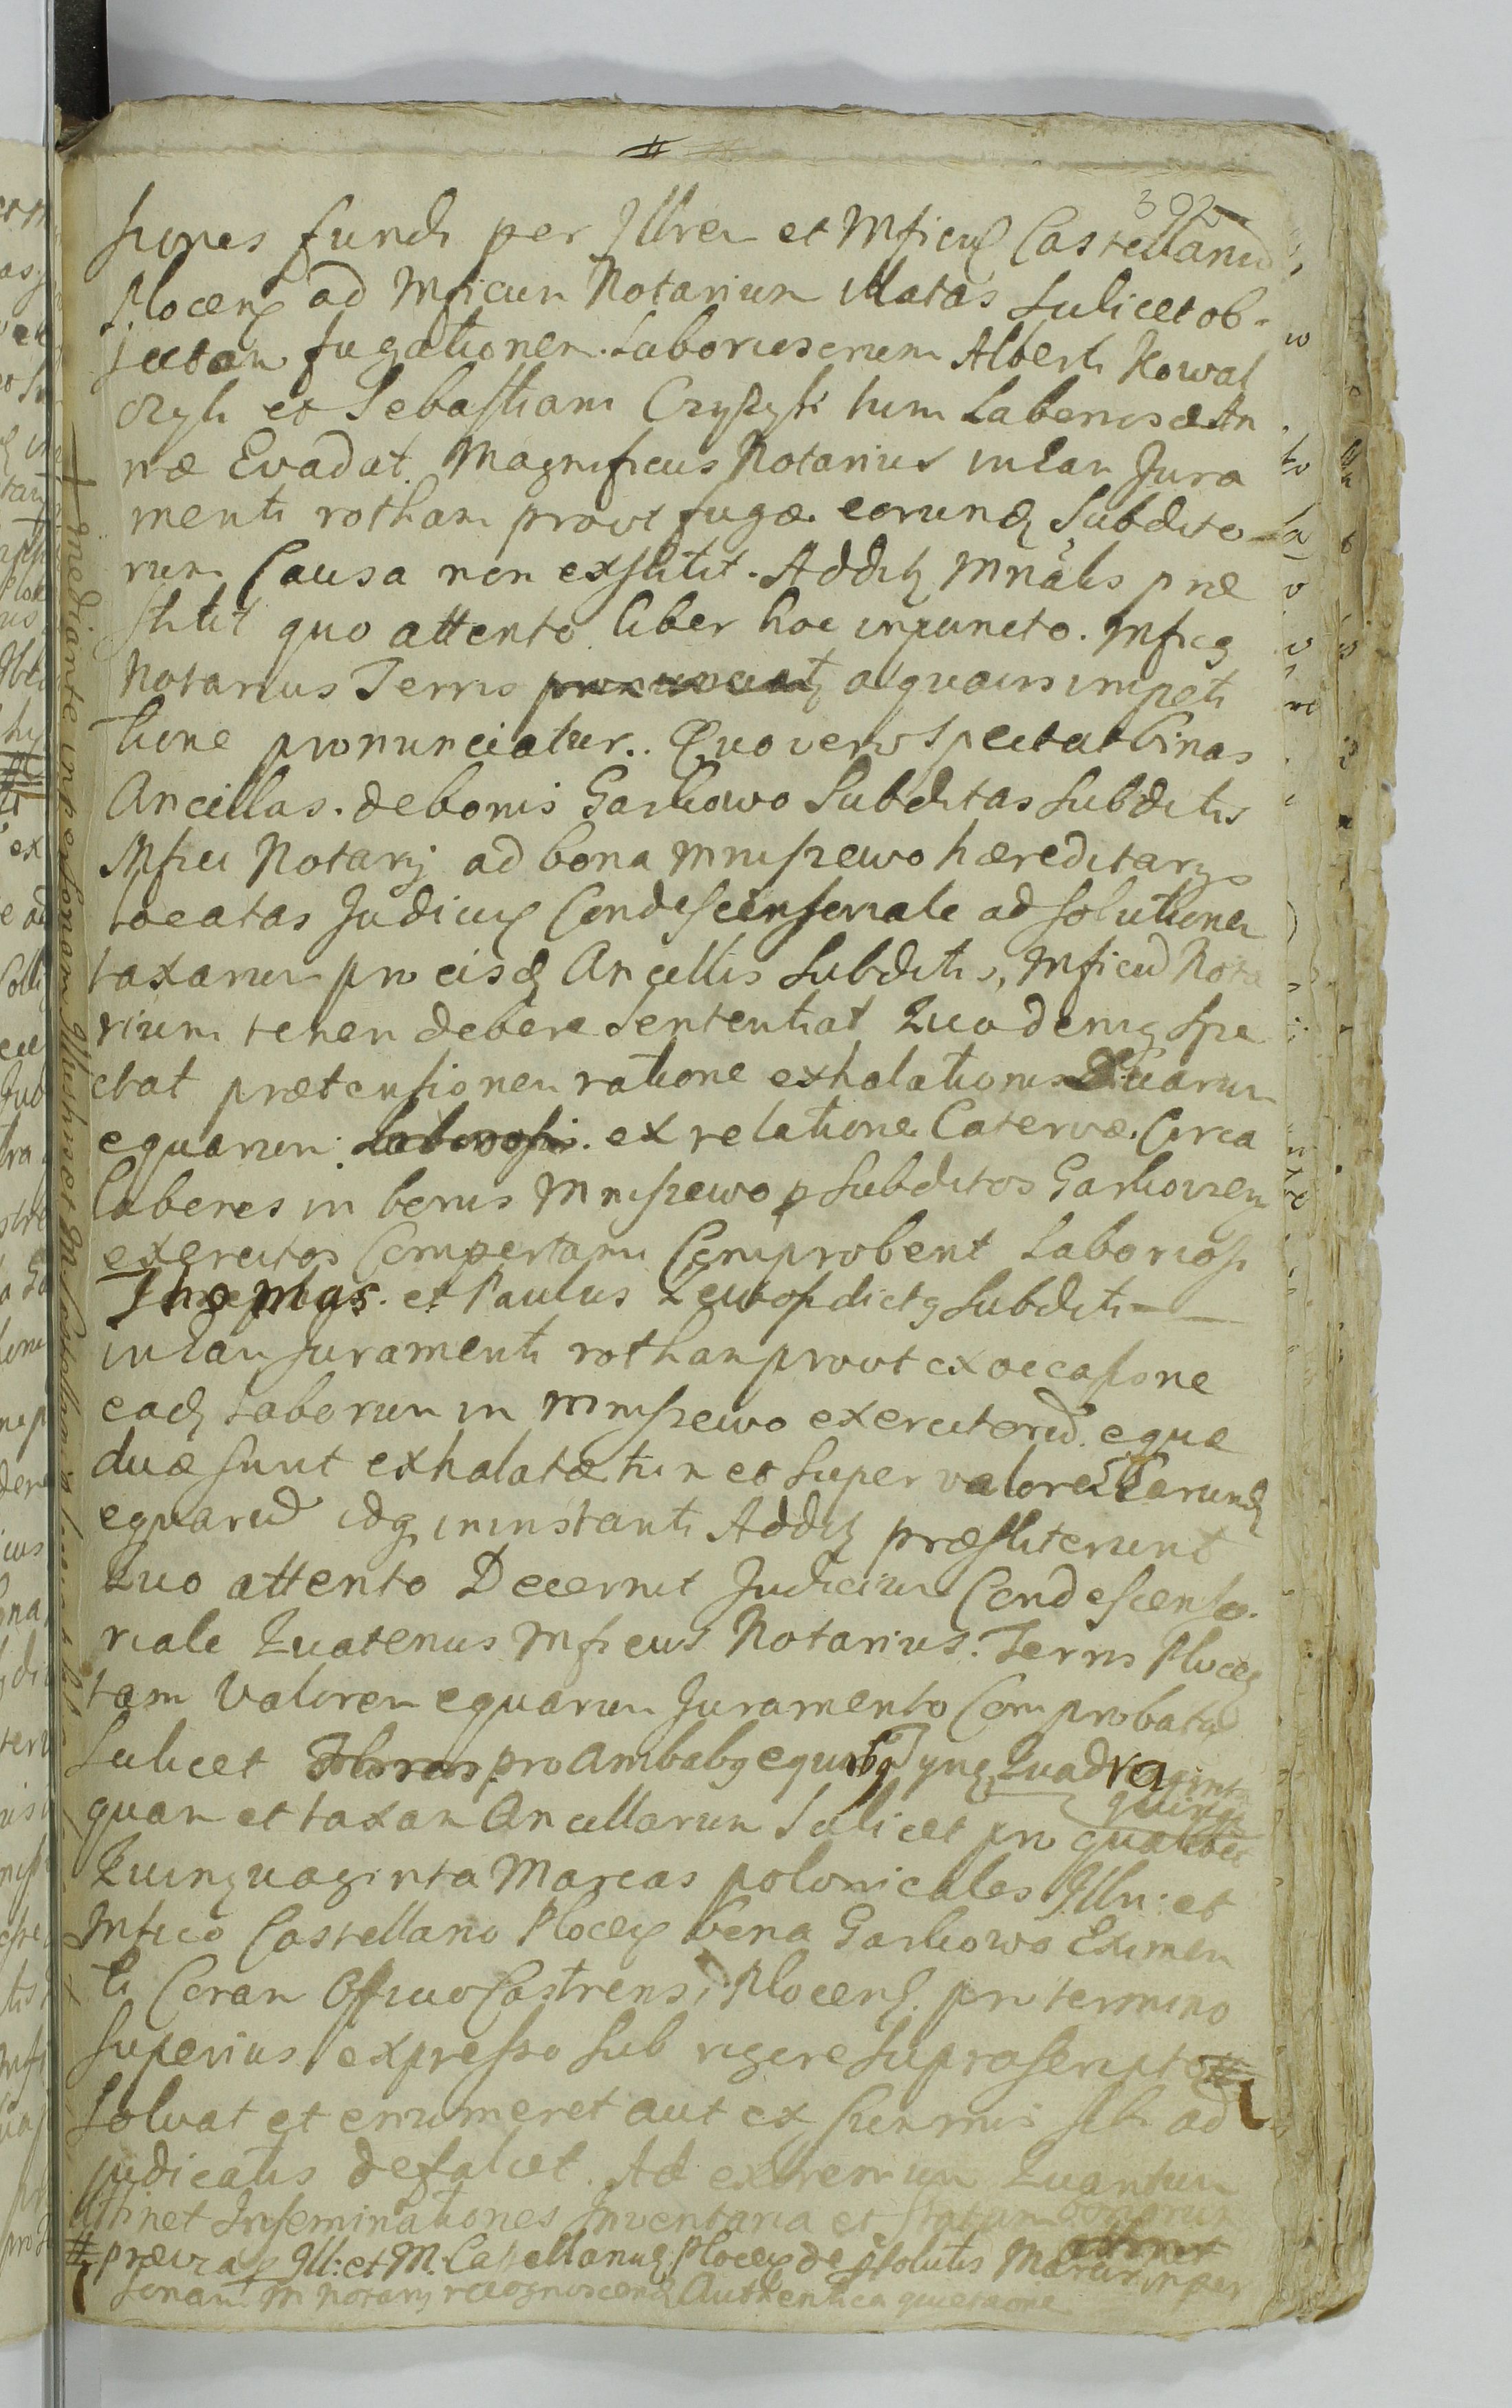 392
siones fundi per Illrem et Mficũ Castellanũ
Plocenş ad Mficum Notarium illatas scilicet ob-
jectam fugationem Laboriosorum Alberti Kowal
czyk et Sebastiani Czyżyk tum Laboriosæ An
næ Evadat Magnificus Notarius in Ean Jura
menti rotham prout fugæ eorundȩ Subdito
rum Causa non exstitit. Additȩ Mnalis præ
stitit quo attento liber hoc in puncto Mficꝰ
Notarius Terris a quavis impeti
tione pronunciatur. Quo vero spectat binas
Ancillas de bonis Garliowo Subditas Subditis
Mfici Notarij ad bona Mniszewo hæreditarys
locatas Judiciũ Condescensoriale ad solutionem
taxarum pro eisdȩ Ancillis Subditis, Mficũ Nota
rium teneri debere Sententiat Quo deniqȝ spe
ctat prætensionem ratione exhalationis Duarum
equarum ex relatione Catervæ Circa
labores in bonis Mniszewo p Subditos Garliovien
exercitos Compertam Comprobent Laboriosi
Thomas et Paulus dictꝰ Subditi
in Ean Juramenti rotham prout ex occasione
eadȩ Laborum in Mniszewo exercitorũ equæ
duæ sunt exhalatæ tum et super valorem Earundȩ
equarũ idqȝ in instanti Additȩ præstiterunt
Quo attento Decernit Judicium Condescenso
riale Quatenus Mficus Notarius Terris Plocenȩ
tam Valorem equarum Juramento Comprobatũ
Scilicet pro Ambabꝰ equabꝰ Quadraginta
quam et taxam Ancillarum Scilicet pro qualibet
Quinquaginta Marcas polonicales Illri: et
Mfico Castellano Plocenş bona Garliowo Eximen
ti Coram Officio Castrensi Plocenş pro termino
superius expresso sub rigore suprascripto #
Solvat et enumeret aut ex summis sibi ad
judicatis defalcet. Ad extremum Quantum
attinet Inseminationes Inventaria et statum bonorum
# præviaqȝ Ill: et M. Castellanũ Plocenş de solutis
sonam M Notarij recognoscendȩ Authentica quietatione
+ mediante in personam Illustris et M Castellani